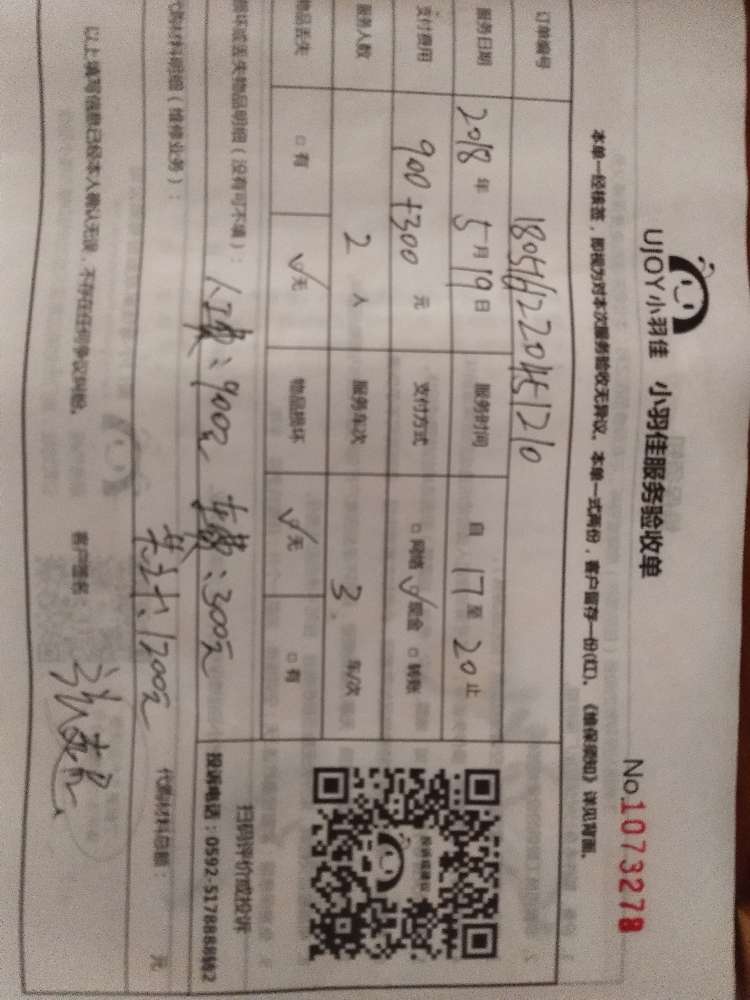 UJOY小羽佳 小羽佳服务验收单
No.1073278
本单一经核签，即视为对本次服务验收无异议。本单一式两份，客户留存一份(红)。《维保须知》详见背面。
订单编号 1805161220451210
服务日期 2018年5月19日 服务时间 自17至20止
支付费用 900+300元 支付方式 □网络 √现金 □转账
服务人数 2人 服务车次 3车/次
物品丢失 □有 √无 物品损坏 √无 □有
损坏或丢失物品明细（没有可不填）：
人工费：900元 车费：300元
扫码评价或投诉
投诉电话：0592-5178888转2
代购材料明细（维修业务）：
共计：1200元
代购材料总额： 元
以上填写信息已经本人确认无误，不存在任何争议纠纷。 客户签名：